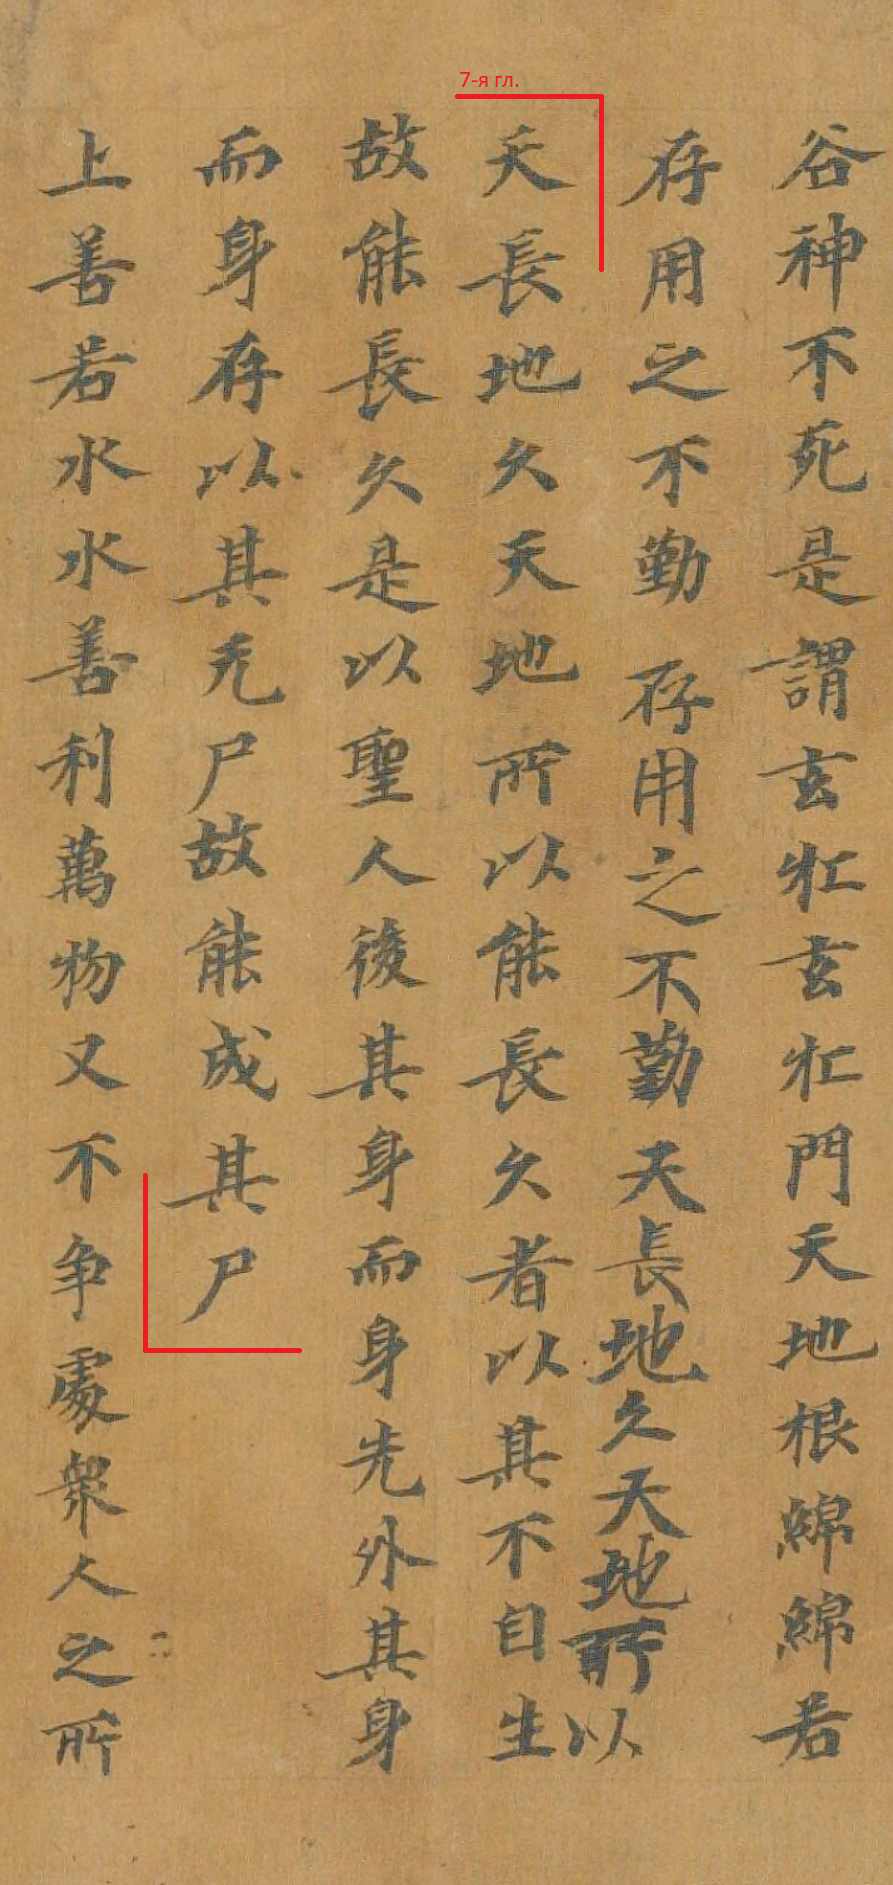 7-я гл.
谷神不死是謂玄牝玄牝門天地根綿綿若
存用之不勤 存用之不勤天長地久天地所以
天長地久天地所以能長久者以其不自生
故能長久是以聖人後其身而身先外其身
而身存以其无尸故能成其尸
上善若水水善利萬物又不争處衆人之所